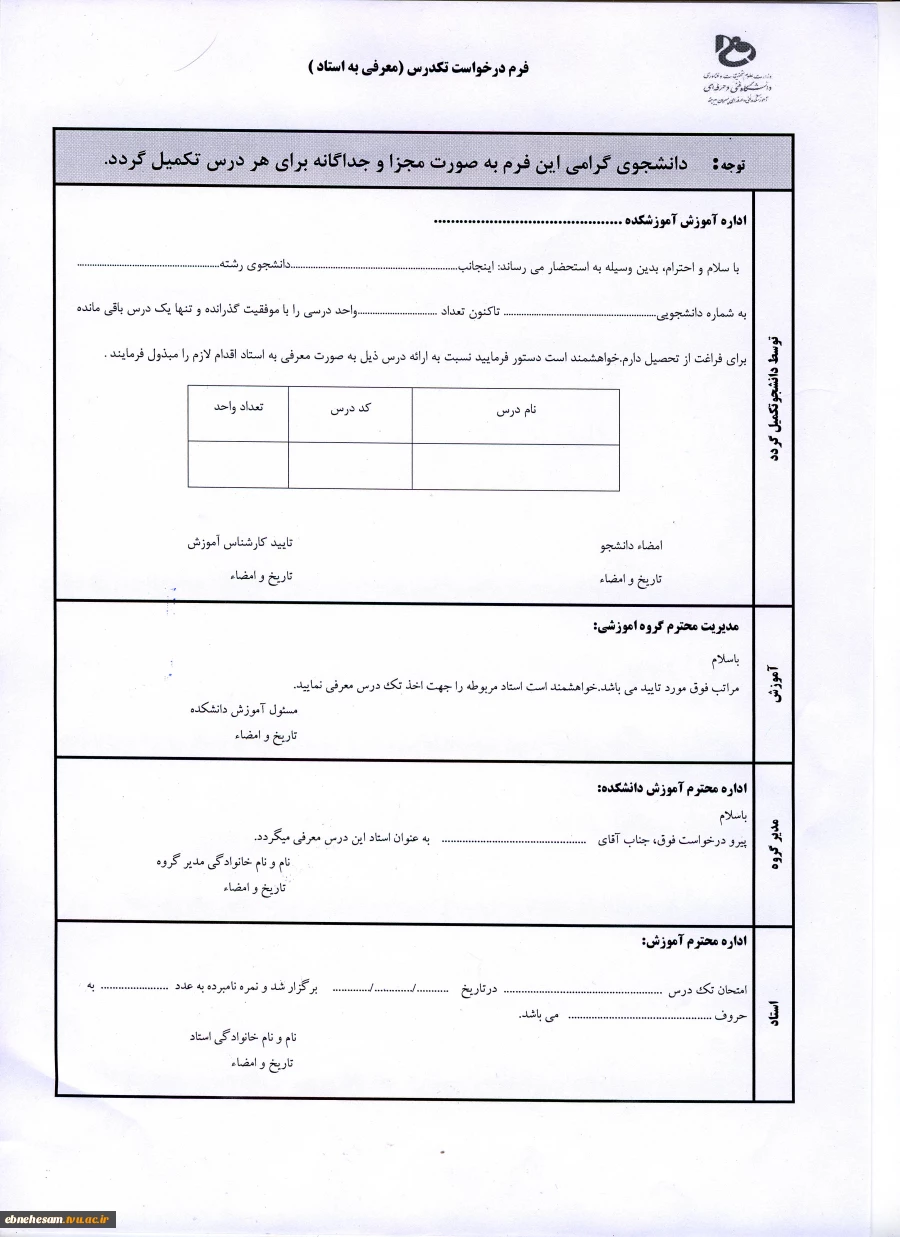 فرم درخواست تکدرس (معرفی به استاد )
وزارت علوم تحقیقات و فناوری
دانشگاه فنی و حرفه ای
توجه: دانشجوی گرامی این فرم به صورت مجزا و جداگانه برای هر درس تکمیل گردد.
توسط دانشجو تکمیل گردد
اداره آموزش آموزشکده ............................................
با سلام و احترام، بدین وسیله به استحضار می رساند: اینجانب..........................................................دانشجوی رشته..................................................
به شماره دانشجویی..................................................... تاکنون تعداد ............................واحد درسی را با موفقیت گذرانده و تنها یک درس باقی مانده
برای فراغت از تحصیل دارم.خواهشمند است دستور فرمایید نسبت به ارائه درس ذیل به صورت معرفی به استاد اقدام لازم را مبذول فرمایند .
نام درس کد درس تعداد واحد
امضاء دانشجو تایید کارشناس آموزش
تاریخ و امضاء تاریخ و امضاء
آموزش
مدیریت محترم گروه اموزشی:
باسلام
مراتب فوق مورد تایید می باشد.خواهشمند است استاد مربوطه را جهت اخذ تک درس معرفی نمایید.
مسئول آموزش دانشکده
تاریخ و امضاء
مدیر گروه
اداره محترم آموزش دانشکده:
باسلام
پیرو درخواست فوق، جناب آقای .................................................. به عنوان استاد این درس معرفی میگردد.
نام و نام خانوادگی مدیر گروه
تاریخ و امضاء
استاد
اداره محترم آموزش:
امتحان تک درس ....................................................... درتاریخ ............/............/............ برگزار شد و نمره نامبرده به عدد ....................... به
حروف .................................................. می باشد.
نام و نام خانوادگی استاد
تاریخ و امضاء
ebnehesam.tvu.ac.ir